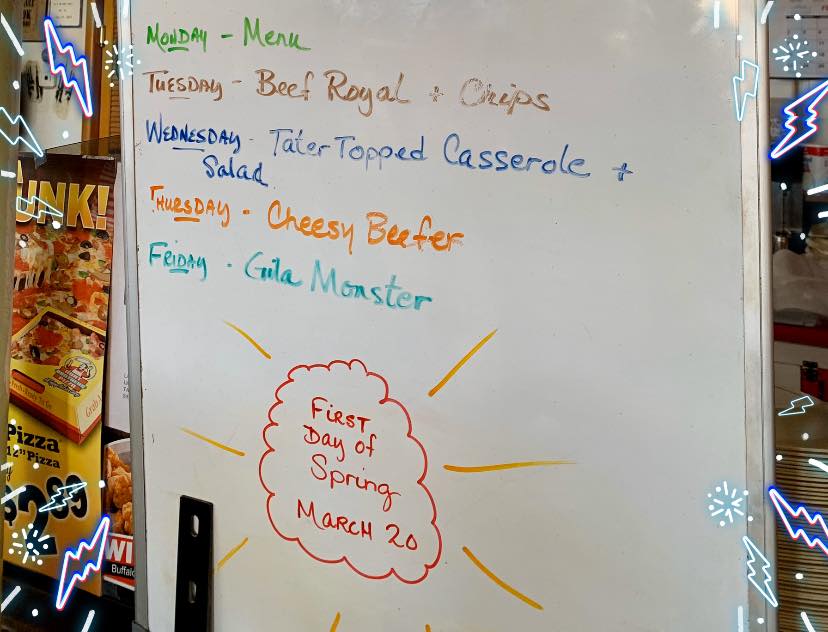 MONDAY - Menu
TUESDAY - Beef Royal + Chips
WEDNESDAY - Tater Topped Casserole +
Salad
THURSDAY - Cheesy Beefer
FRIDAY - Gila Monster
FIRST
Day of
Spring
MARCH 20
UNK!
Pizza
12" Pizza
$2.99
WI
Buffalo